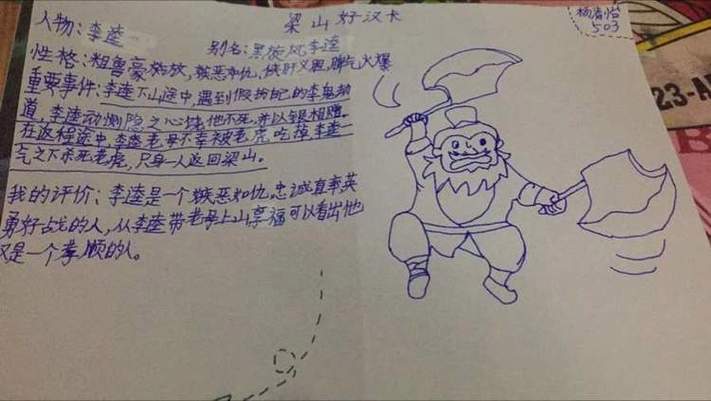 梁山好汉卡
杨清怡
503
人物：李逵
别名：黑旋风李逵
性格：粗鲁豪放，嫉恶如仇，侠肝义胆，脾气火爆
重要事件：李逵下山途中，遇到假扮自己的李鬼劫
道，李逵动恻隐之心饶他不死，并以银相赠。
在返程途中，李逵老母不幸被老虎吃掉，李逵一
气之下杀死老虎，只身一人返回梁山。
我的评价：李逵是一个嫉恶如仇，忠诚直率英
勇好战的人，从李逵带老母上山享福可以看出他
又是一个孝顺的人。
23-A